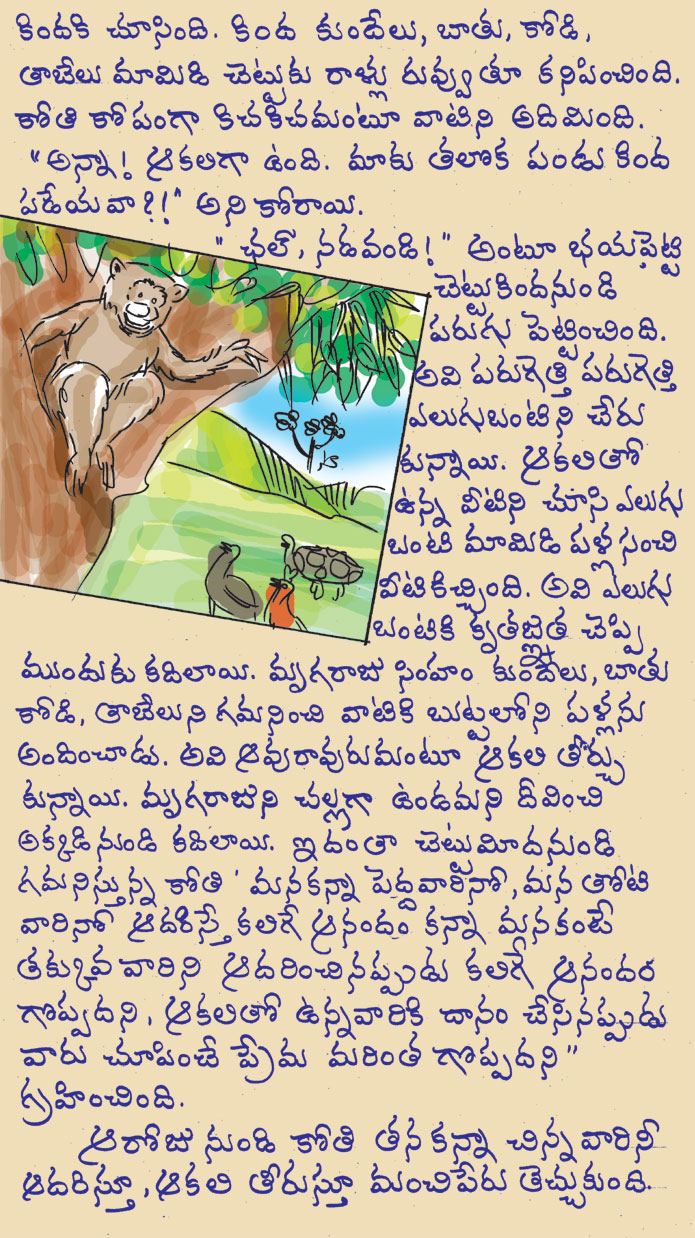 కిందకి చూసింది. కింద కుందేలు, బాతు, కోడి,
తాబేలు మామిడి చెట్టుకు రాళ్లు రువ్వుతూ కనిపించింది.
కోతి కోపంగా కిచకిచమంటూ వాటిని అదిమింది.
"అన్నా! ఆకలిగా ఉంది. మాకు తలొక పండు కింద
పడేయవా?!" అని కోరాయి.
"ఛల్, నడవండి!" అంటూ భయపెట్టి
చెట్టుకిందనుండి
పరుగు పెట్టించింది.
అవి పరుగెత్తి పరుగెత్తి
ఎలుగుబంటిని చేరు
కున్నాయి. ఆకలితో
ఉన్న వీటిని చూసి ఎలుగు
బంటి మామిడి పళ్ల సంచి
వీటికిచ్చింది. అవి ఎలుగు
బంటికి కృతజ్ఞత చెప్పి
ముందుకు కదిలాయి. మృగరాజు సింహం కుందేలు, బాతు
కోడి, తాబేలుని గమనించి వాటికి బుట్టలోని పళ్లను
అందించాడు. అవి ఆవురావురుమంటూ ఆకలి తీర్చు
కున్నాయి. మృగరాజుని చల్లగా ఉండమని దీవించి
అక్కడి నుండి కదిలాయి. ఇదంతా చెట్టుమీదనుండి
గమనిస్తున్న కోతి 'మనకన్నా పెద్దవారినో, మన తోటి
వారినో ఆదరిస్తే కలిగే ఆనందం కన్నా మనకంటే
తక్కువ వారిని ఆదరించినప్పుడు కలిగే ఆనందం
గొప్పదని, ఆకలితో ఉన్నవారికి దానం చేసినప్పుడు
వారు చూపించే ప్రేమ మరింత గొప్పదని"
గ్రహించింది.
ఆరోజు నుండి కోతి తన కన్నా చిన్న వారినీ
ఆదరిస్తూ, ఆకలి తీరుస్తూ మంచిపేరు తెచ్చుకుంది.